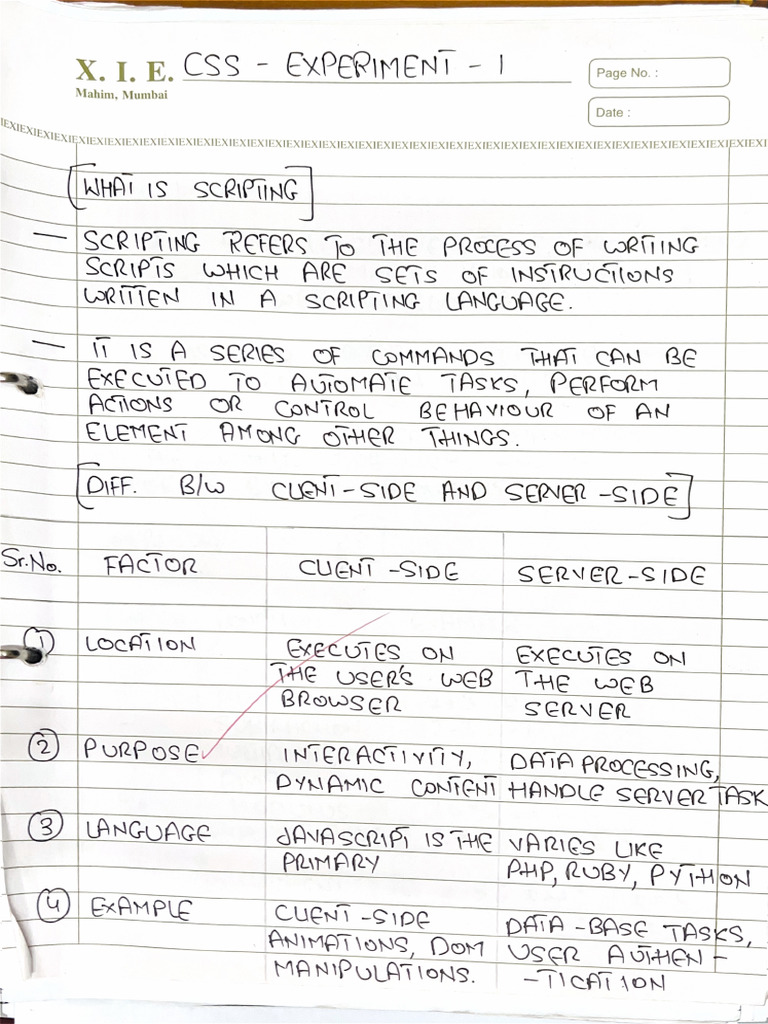 X. I. E. CSS - EXPERIMENT - 1
Mahim, Mumbai
Page No. :
Date :
IEXIEXIEXIEXIEXIEXIEXIEXIEXIEXIEXIEXIEXIEXIEXIEXIEXIEXIEXIEXIEXIEXIEXIEXIEXIEXIEXIEXIEXIEXI
[WHAT IS SCRIPTING]
— SCRIPTING REFERS TO THE PROCESS OF WRITIING
SCRIPTS WHICH ARE SETS OF INSTRUCTIONS
WRITTEN IN A SCRIPTING LANGUAGE.
— IT IS A SERIES OF COMMANDS THAT CAN BE
EXECUTED TO AUTOMATE TASKS, PERFORM
ACTIONS OR CONTROL BEHAVIOUR OF AN
ELEMENT AMONG OTHER THINGS.
[DIFF. B/W CLIENT-SIDE AND SERVER-SIDE]
Sr.No. FACTOR CLIENT-SIDE SERVER-SIDE
1 LOCATION EXECUTES ON EXECUTES ON
THE USER'S WEB THE WEB
BROWSER SERVER
2 PURPOSE INTERACTIVITY, DATA PROCESSING,
DYNAMIC CONTENT HANDLE SERVER TASK
3 LANGUAGE JAVASCRIPT IS THE VARIES LIKE
PRIMARY PHP, RUBY, PYTHON
4 EXAMPLE CLIENT-SIDE DATA-BASE TASKS,
ANIMATIONS, DOM USER AUTHEN-
MANIPULATIONS. -TICATION